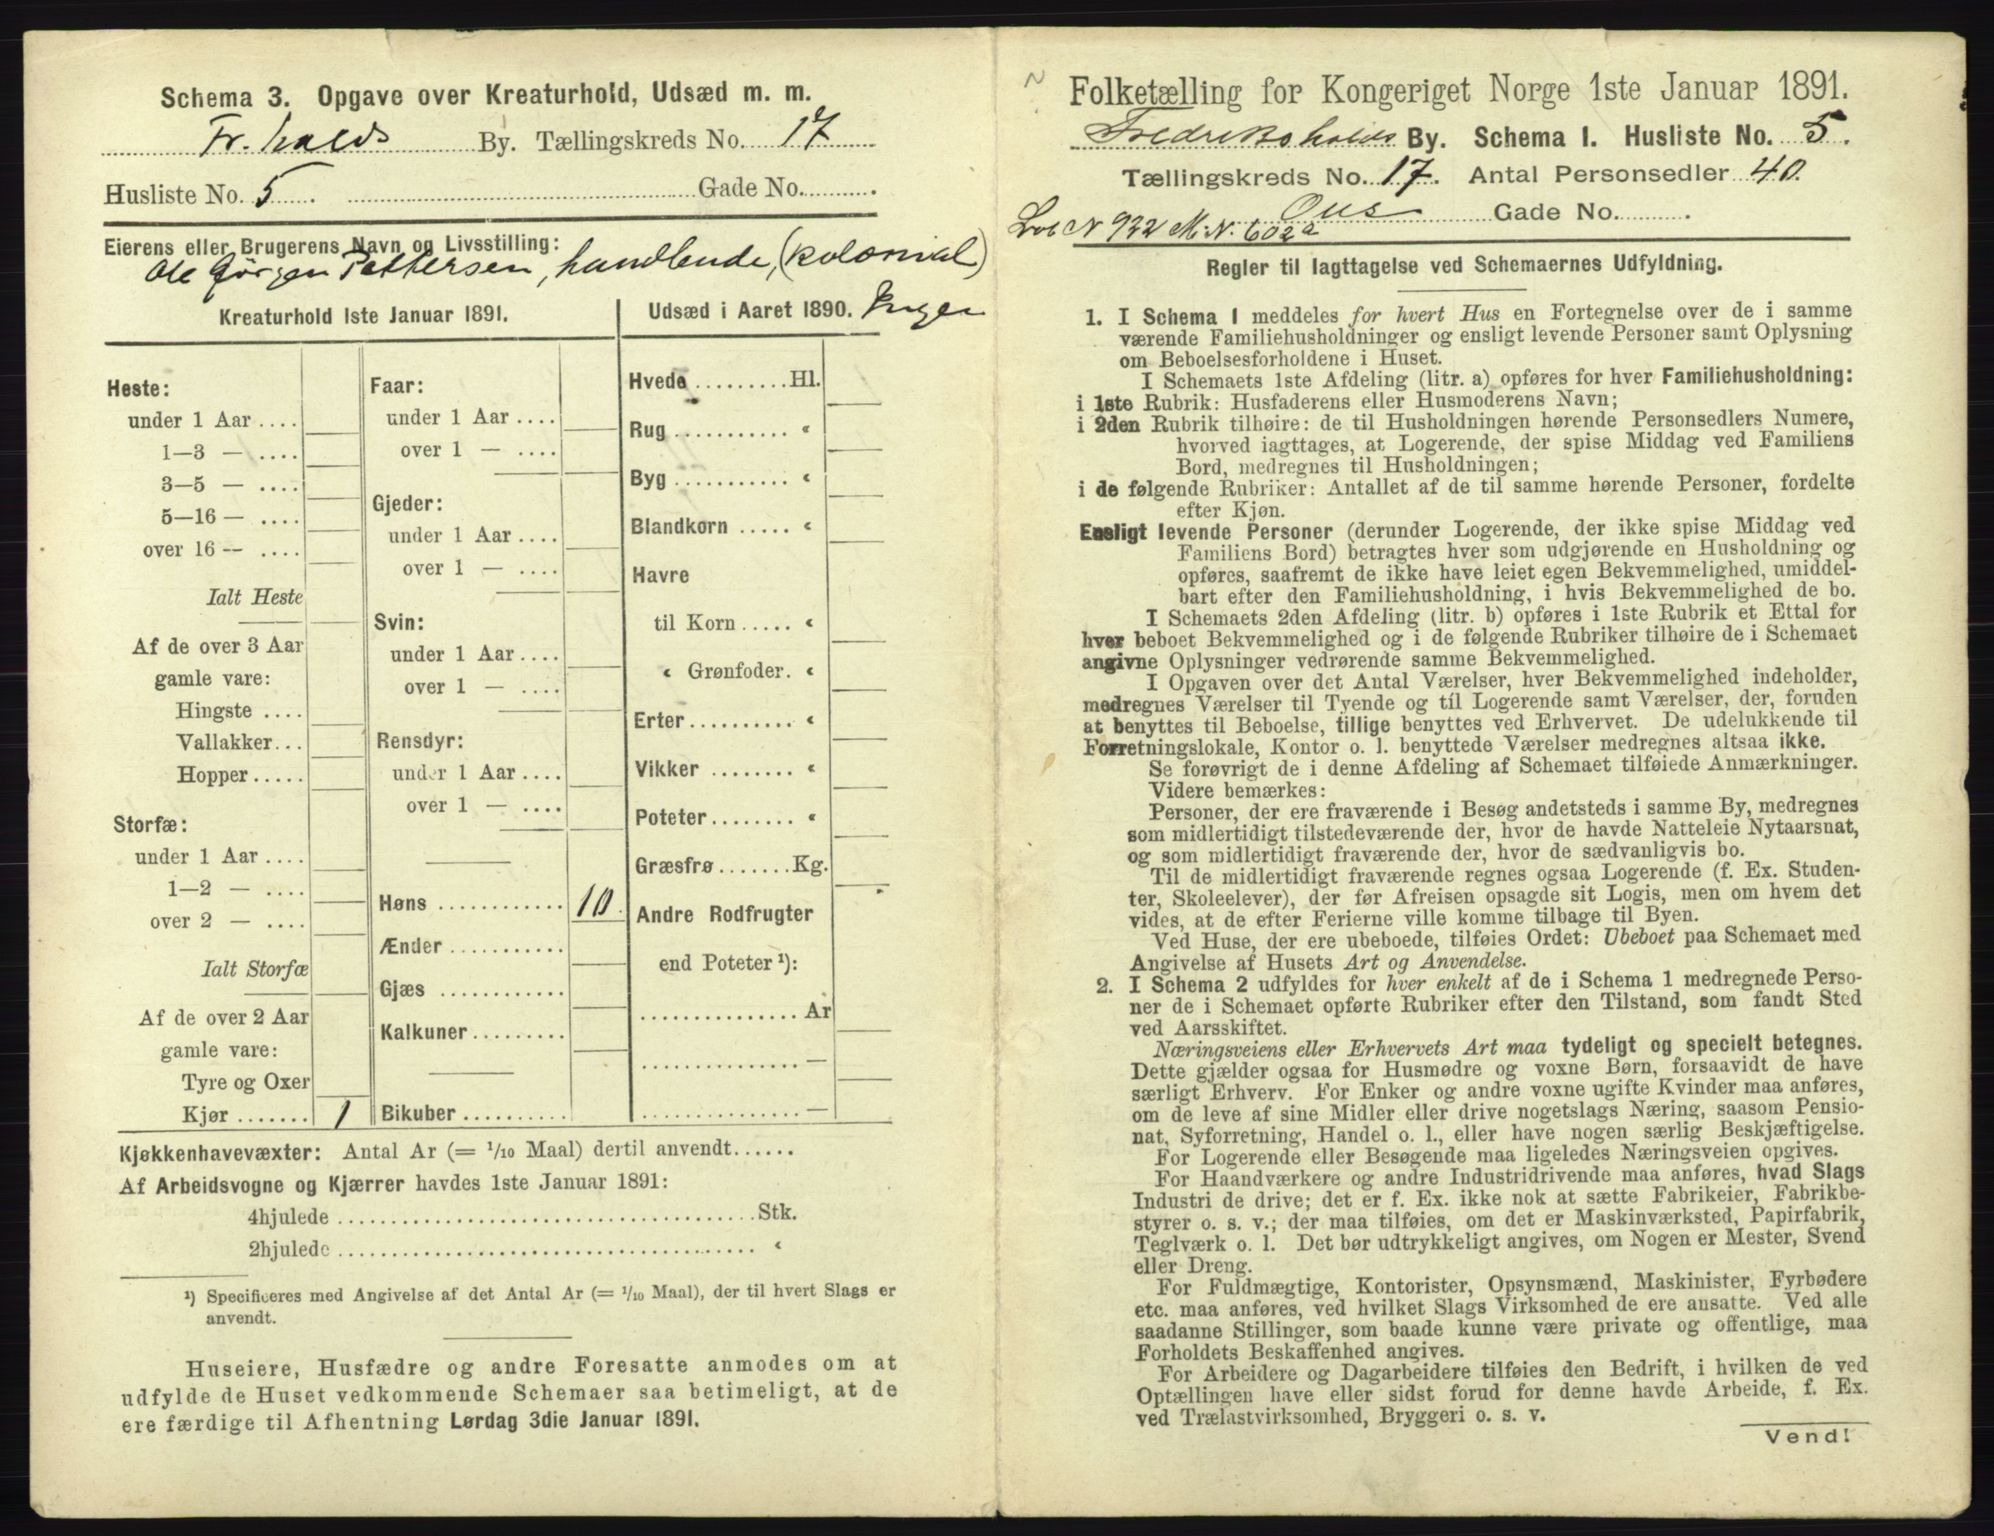 Schema 3. Opgave over Kreaturhold, Udsæd m. m.
Fr.halds By. Tællingskreds No. 17
Husliste No. 5. Gade No.
Eierens eller Brugerens Navn og Livsstilling:
Ole Jørgen Pettersen, handlende, (kolonial)
Kreaturhold 1ste Januar 1891.
Heste:
under 1 Aar ....
1—3 — ....
3—5 — ....
5—16 — ....
over 16 — ....
Ialt Heste
Af de over 3 Aar
gamle vare:
Hingste ....
Vallakker...
Hopper.....
Storfæ:
under 1 Aar ....
1—2 — ....
over 2 — ....
Ialt Storfæ
Af de over 2 Aar
gamle vare:
Tyre og Oxer
Kjør ....... 1
Faar:
under 1 Aar ....
over 1 — ....
Gjeder:
under 1 Aar ....
over 1 — ....
Svin:
under 1 Aar ....
over 1 — ....
Rensdyr:
under 1 Aar ....
over 1 — ....
Høns ............ 10.
Ænder ...........
Gjæs ............
Kalkuner.........
Bikuber ..........
Udsæd i Aaret 1890. Ingen
Hvede .........Hl.
Rug ........... «
Byg ........... «
Blandkorn ..... «
Havre
til Korn ..... «
« Grønfoder. «
Erter.......... «
Vikker ........ «
Poteter........ «
Græsfrø.......Kg.
Andre Rodfrugter
end Poteter ¹):
............... Ar
............... —
............... —
Kjøkkenhavevæxter: Antal Ar (= 1/10 Maal) dertil anvendt......
Af Arbeidsvogne og Kjærrer havdes 1ste Januar 1891:
4hjulede ........................................Stk.
2hjulede ........................................ «
¹) Specificeres med Angivelse af det Antal Ar (= 1/10 Maal), der til hvert Slags er
anvendt.
Huseiere, Husfædre og andre Foresatte anmodes om at
udfylde de Huset vedkommende Schemaer saa betimeligt, at de
ere færdige til Afhentning Lørdag 3die Januar 1891.
Folketælling for Kongeriget Norge 1ste Januar 1891.
Fredrikshalds By. Schema I. Husliste No. 5.
Tællingskreds No. 17. Antal Personsedler 40.
Ous Gade No.
N 932 M.N. 602a
Regler til Iagttagelse ved Schemaernes Udfyldning.
1. I Schema 1 meddeles for hvert Hus en Fortegnelse over de i samme
værende Familiehusholdninger og ensligt levende Personer samt Oplysning
om Beboelsesforholdene i Huset.
I Schemaets 1ste Afdeling (litr. a) opføres for hver Familiehusholdning:
i 1ste Rubrik: Husfaderens eller Husmoderens Navn;
i 2den Rubrik tilhøire: de til Husholdningen hørende Personsedlers Numere,
hvorved iagttages, at Logerende, der spise Middag ved Familiens
Bord, medregnes til Husholdningen;
i de følgende Rubriker: Antallet af de til samme hørende Personer, fordelte
efter Kjøn.
Ensligt levende Personer (derunder Logerende, der ikke spise Middag ved
Familiens Bord) betragtes hver som udgjørende en Husholdning og
opføres, saafremt de ikke have leiet egen Bekvemmelighed, umiddel-
bart efter den Familiehusholdning, i hvis Bekvemmelighed de bo.
I Schemaets 2den Afdeling (litr. b) opføres i 1ste Rubrik et Ettal for
hver beboet Bekvemmelighed og i de følgende Rubriker tilhøire de i Schemaet
angivne Oplysninger vedrørende samme Bekvemmelighed.
I Opgaven over det Antal Værelser, hver Bekvemmelighed indeholder,
medregnes Værelser til Tyende og til Logerende samt Værelser, der, foruden
at benyttes til Beboelse, tillige benyttes ved Erhvervet. De udelukkende til
Forretningslokale, Kontor o. l. benyttede Værelser medregnes altsaa ikke.
Se forøvrigt de i denne Afdeling af Schemaet tilføiede Anmærkninger.
Videre bemærkes:
Personer, der ere fraværende i Besøg andetsteds i samme By, medregnes
som midlertidigt tilstedeværende der, hvor de havde Natteleie Nytaarsnat,
og som midlertidigt fraværende der, hvor de sædvanligvis bo.
Til de midlertidigt fraværende regnes ogsaa Logerende (f. Ex. Studen-
ter, Skoleelever), der før Afreisen opsagde sit Logis, men om hvem det
vides, at de efter Ferierne ville komme tilbage til Byen.
Ved Huse, der ere ubeboede, tilføies Ordet: Ubeboet paa Schemaet med
Angivelse af Husets Art og Anvendelse.
2. I Schema 2 udfyldes for hver enkelt af de i Schema 1 medregnede Perso-
ner de i Schemaet opførte Rubriker efter den Tilstand, som fandt Sted
ved Aarsskiftet.
Næringsveiens eller Erhvervets Art maa tydeligt og specielt betegnes.
Dette gjælder ogsaa for Husmødre og voxne Børn, forsaavidt de have
særligt Erhverv. For Enker og andre voxne ugifte Kvinder maa anføres,
om de leve af sine Midler eller drive nogetslags Næring, saasom Pensio-
nat, Syforretning, Handel o. l., eller have nogen særlig Beskjæftigelse.
For Logerende eller Besøgende maa ligeledes Næringsveien opgives.
For Haandværkere og andre Industridrivende maa anføres, hvad Slags
Industri de drive; det er f. Ex. ikke nok at sætte Fabrikeier, Fabrikbe-
styrer o. s. v.; der maa tilføies, om det er Maskinværksted, Papirfabrik,
Teglværk o. l. Det bør udtrykkeligt angives, om Nogen er Mester, Svend
eller Dreng.
For Fuldmægtige, Kontorister, Opsynsmænd, Maskinister, Fyrbødere
etc. maa anføres, ved hvilket Slags Virksomhed de ere ansatte. Ved alle
saadanne Stillinger, som baade kunne være private og offentlige, maa
Forholdets Beskaffenhed angives.
For Arbeidere og Dagarbeidere tilføies den Bedrift, i hvilken de ved
Optællingen have eller sidst forud for denne havde Arbeide, f. Ex.
ved Trælastvirksomhed, Bryggeri o. s. v.
Vend!